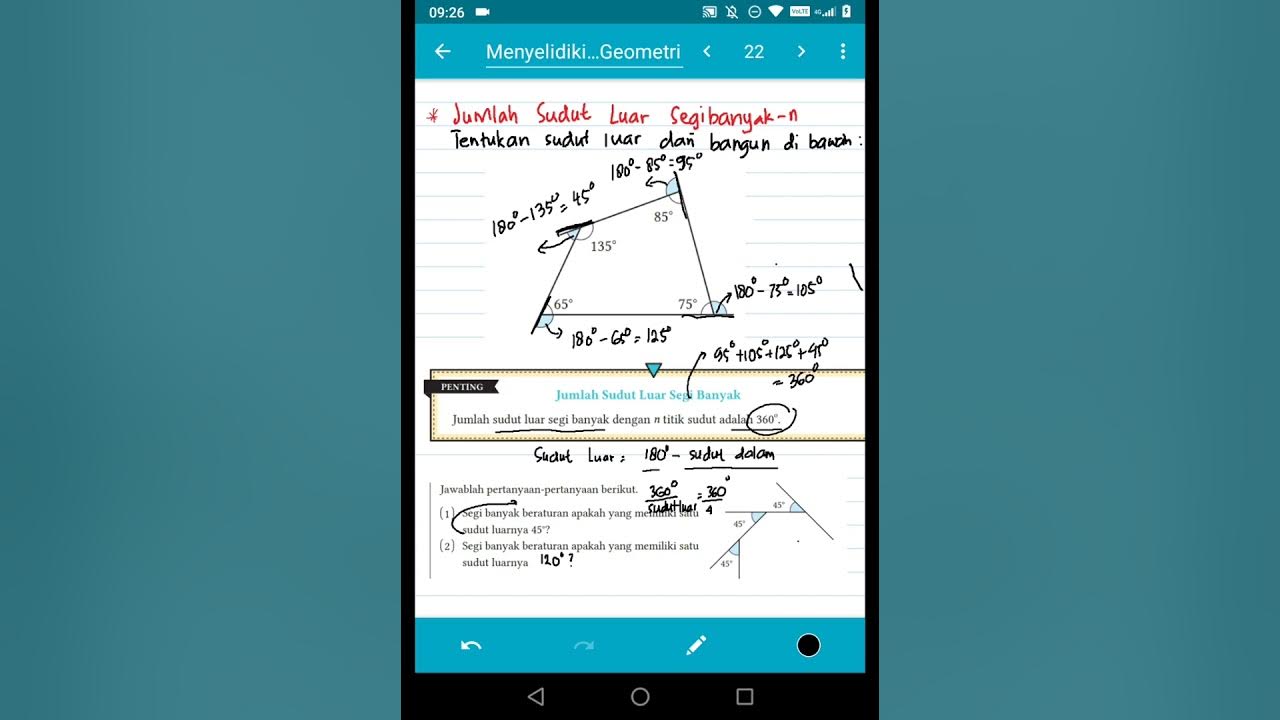 09:26
VoLTE 4G
Menyelidiki...Geometri
22
* Jumlah Sudut Luar Segibanyak-n
Tentukan sudut luar dari bangun di bawah :
180° - 85° = 95°
180° - 135° = 45°
85°
135°
180° - 75° = 105°
65°
75°
180° - 65° = 125°
95° + 105° + 125° + 45°
= 360°
PENTING
Jumlah Sudut Luar Segi Banyak
Jumlah sudut luar segi banyak dengan n titik sudut adalah 360°.
Sudut Luar = 180° - sudut dalam
Jawablah pertanyaan-pertanyaan berikut.
360° / sudut luar = 360° / 4
(1) Segi banyak beraturan apakah yang memiliki satu
sudut luarnya 45°?
(2) Segi banyak beraturan apakah yang memiliki satu
sudut luarnya 120° ?
45°
45°
45°